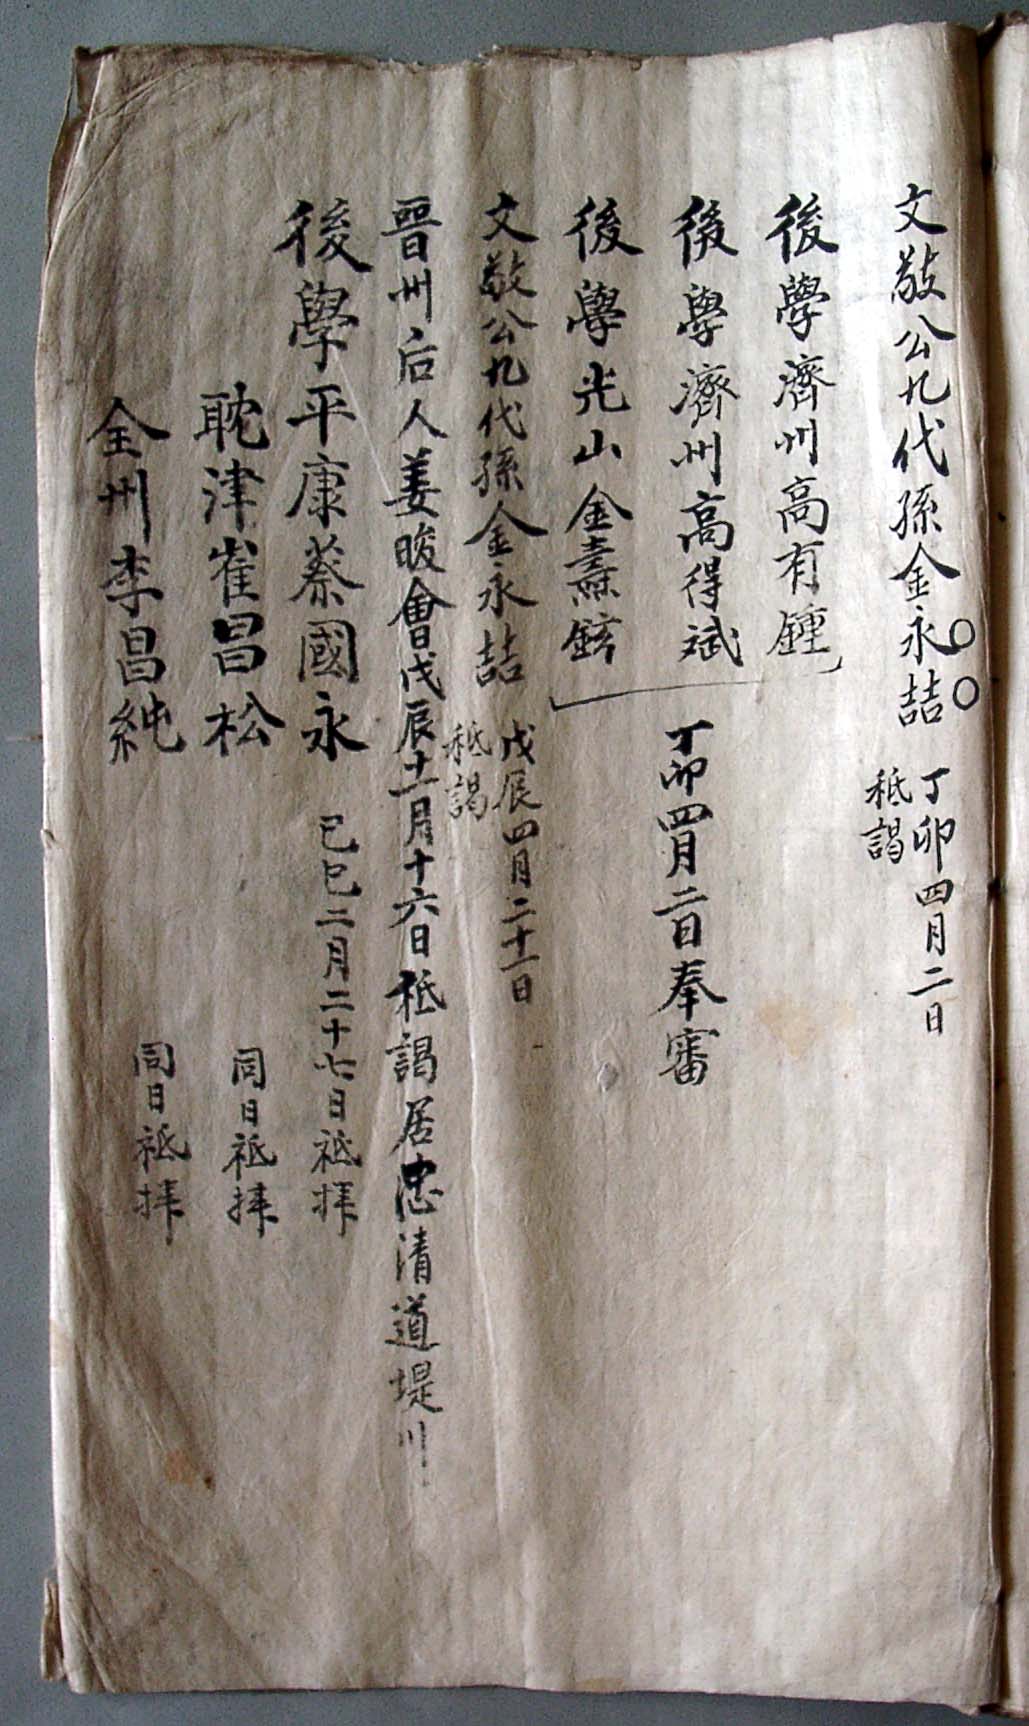 文敬公九代孫金永喆 丁卯四月二日
祗謁
後學濟州高有鍾
後學濟州高得斌 丁卯四月二日奉審
後學光山金燾鉉
文敬公九代孫金永喆 戊辰四月二十一日
祗謁
晉州后人姜晙會戊辰十一月十六日祗謁居忠清道堤川
後學平康蔡國永 己巳二月二十七日祗拜
耽津崔昌松 同日祗拜
全州李昌純 同日祗拜